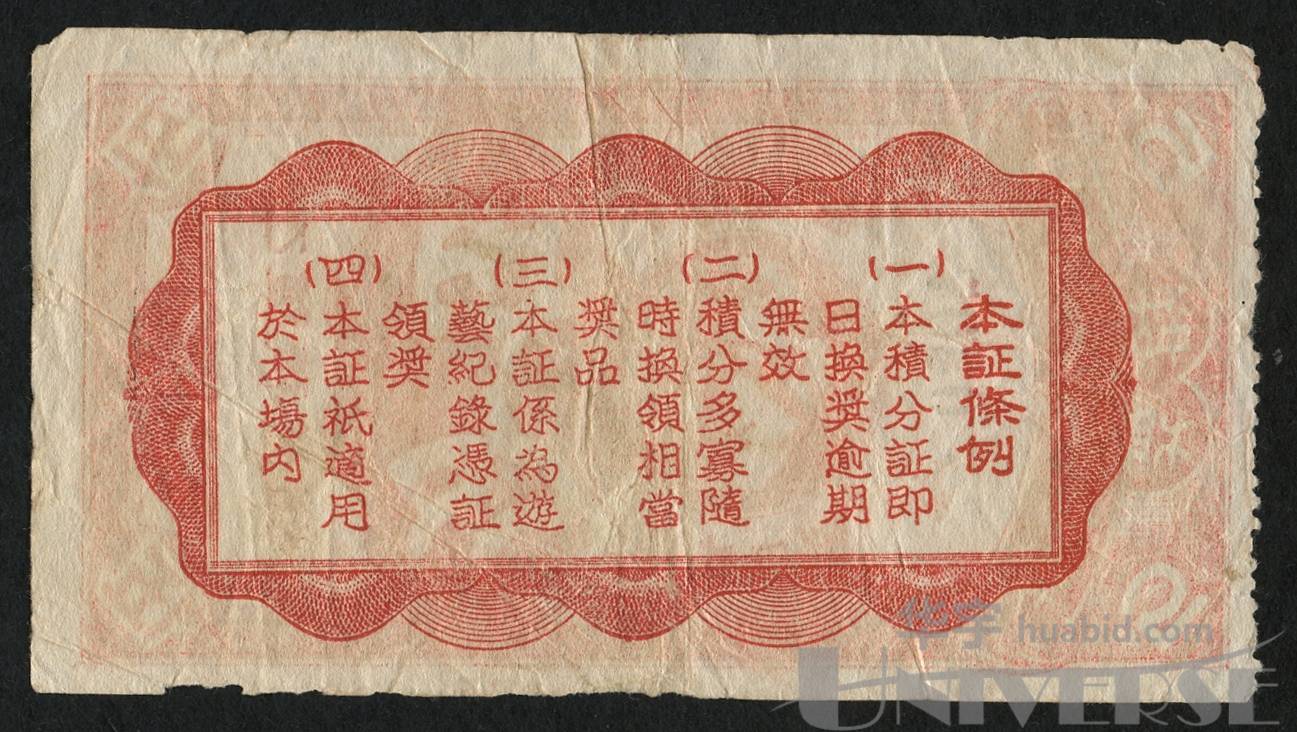 本証條例
(一)本積分証即
日換奨逾期
無效
(二)積分多寡隨
時換領相當
奨品
(三)本証係為遊
藝紀錄憑証
領奨
(四)本証祇適用
於本塲内
华宇 huabid.com
UNIVERSE